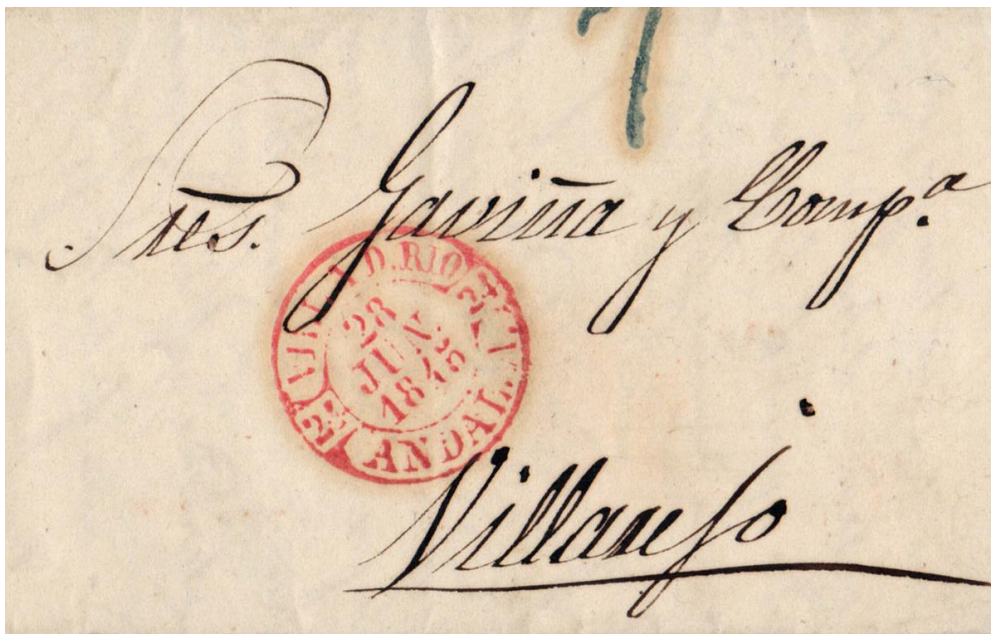 7
Sres. Gaviña y Comp.ª
D. RIO
28
JUN.
1845
ANDAL.
Villarejo